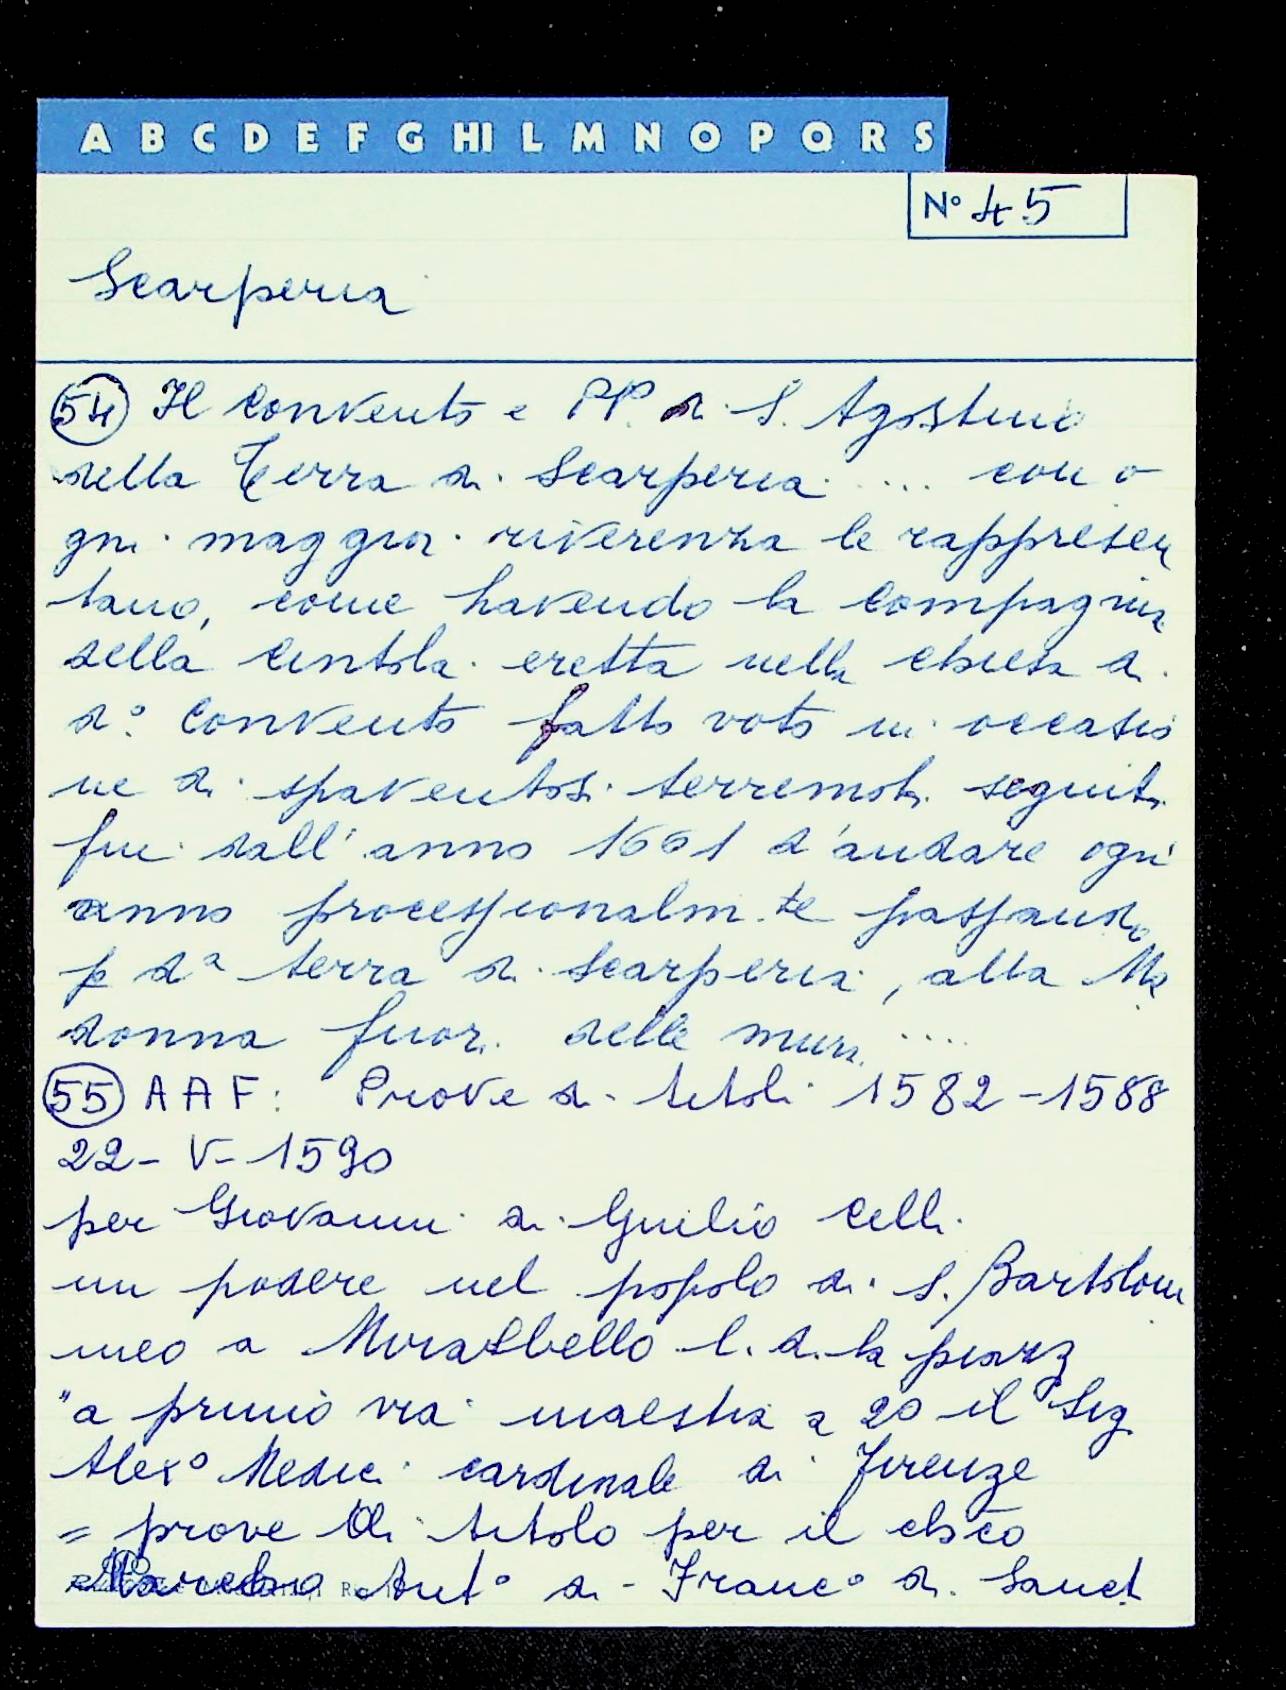 A B C D E F G HI L M N O P Q R S
N° 45
Scarperia
54 Il Convento e PP. di S. Agostino
della Terra di Scarperia .... con o
gni maggior riverenza le rappresen
tano, come havendo la Compagnia
della Cintola eretta nella chiesa di
d° Convento fatto voto in occasio
ne di spaventosi terremoti seguiti
fin dall' anno 1661 d'andare ogni
anno processionalm.te passando
p da terra di Scarperia, alla Ma
donna fuori delle mura ....
55 A A F: Prove di titoli 1582-1588
22- V- 1590
per Giovanni di Guilio Celli
un podere nel popolo di S. Bartolom
meo a Mirabello l. d. la piazz
"a primo via maestra a 20 il Sig
Aless° Medici cardinale di Firenze
= prove di titolo per il
Ant° di Franc° di Sanct